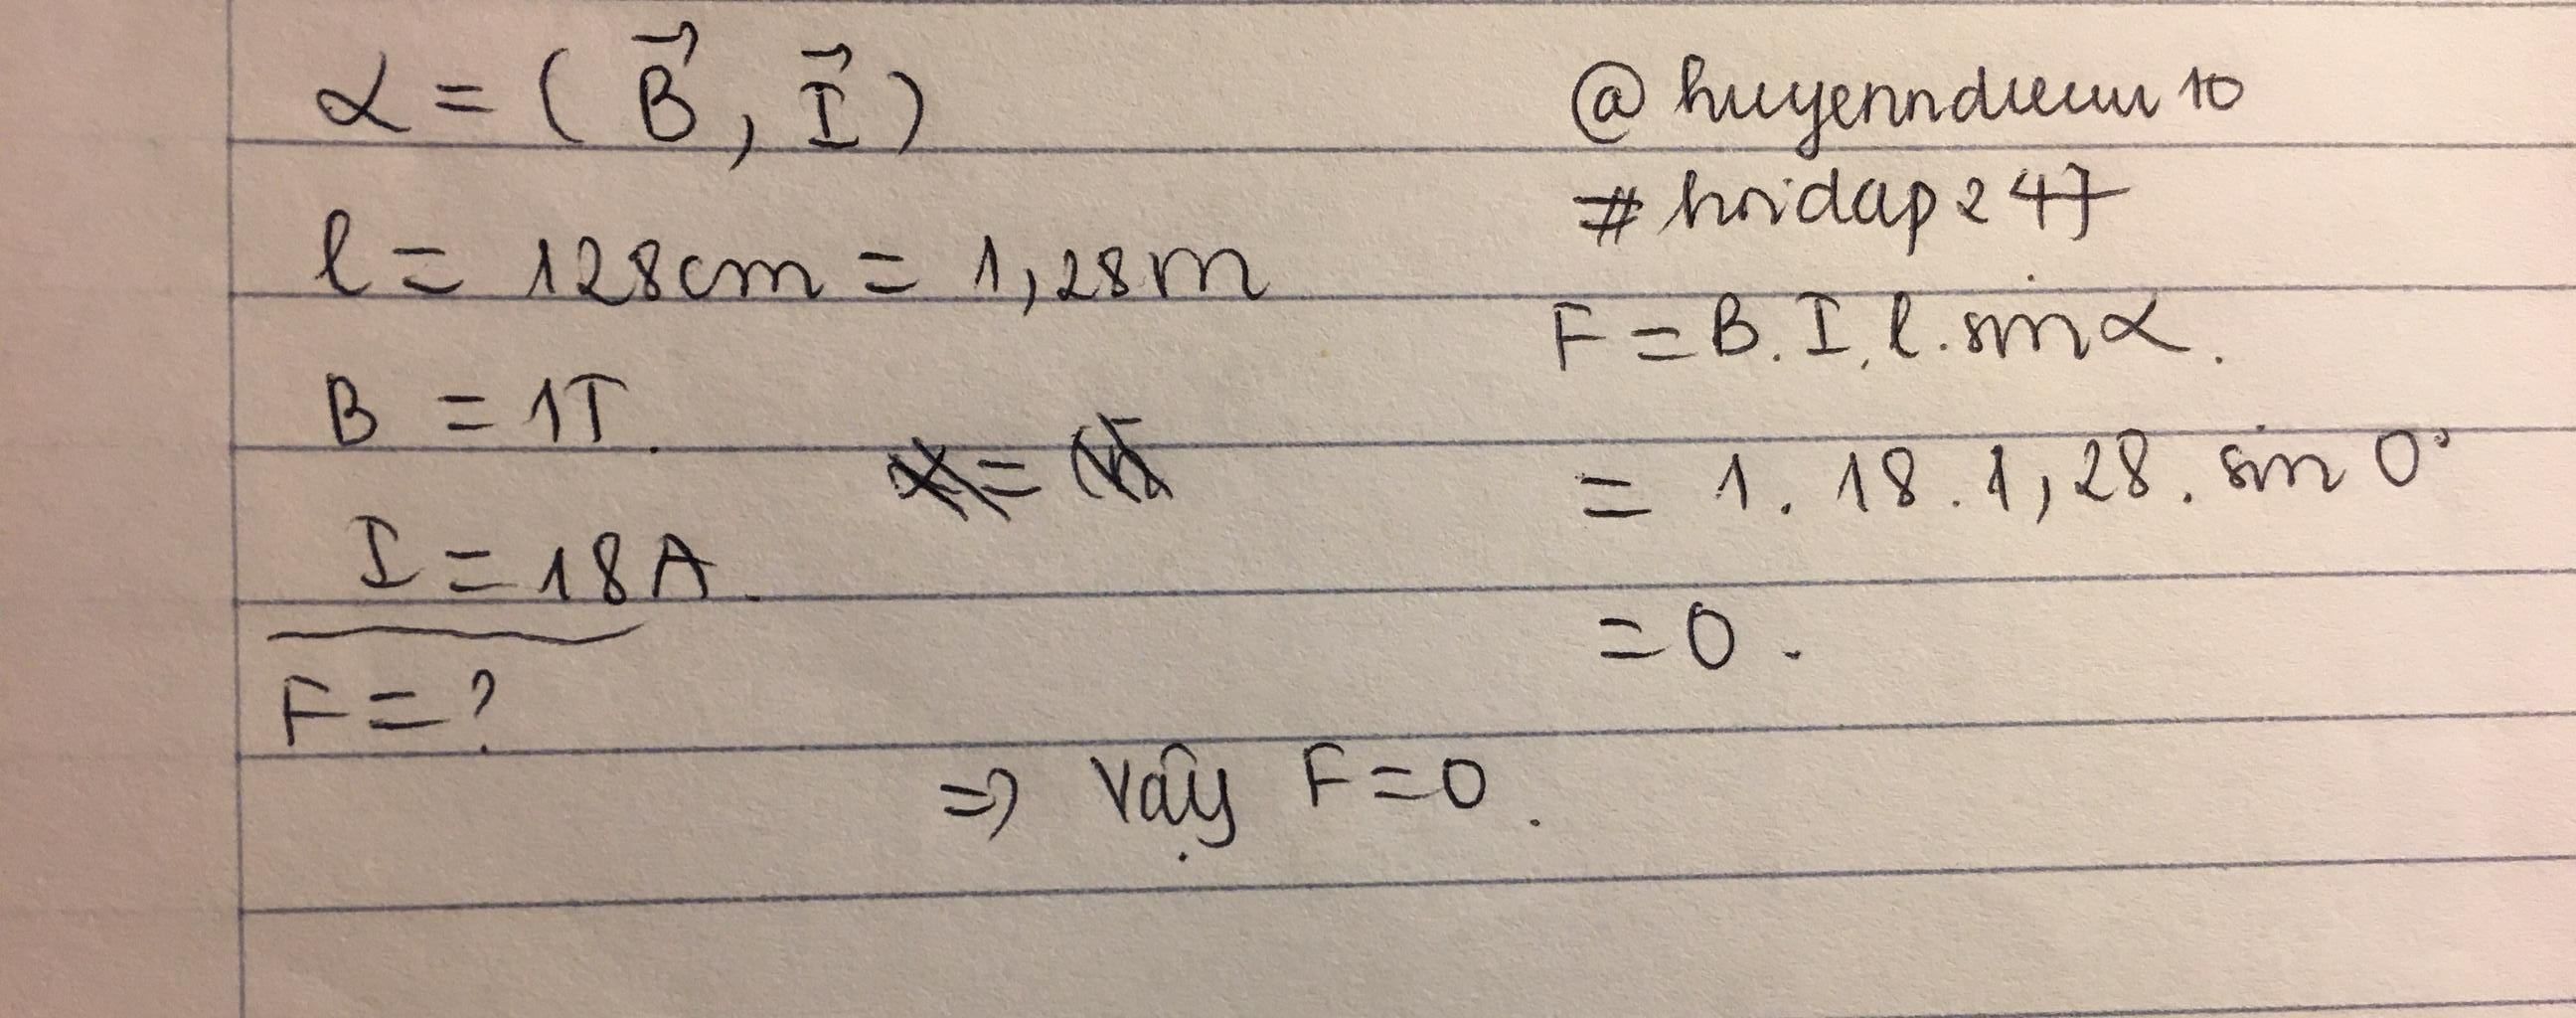 α = (B⃗, I⃗)
l = 128cm = 1,28m
B = 1T.
I = 18A.
F = ?
@huyenndieuu10
#hoidap247
F = B.I.l.sinα.
= 1.18.1,28.sin0°
= 0.
⇒ Vậy F = 0.